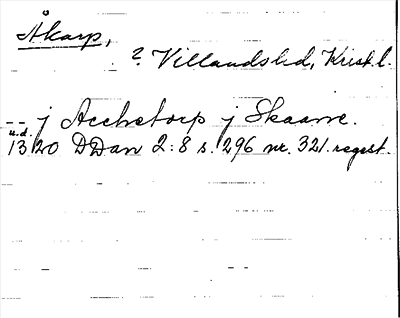 Åkarp,
? Villandshd, Krist. l.
-- j Acchetorp j Skaane.
u.d.
1320 DDan 2:8 s. 296 nr. 321. regest.